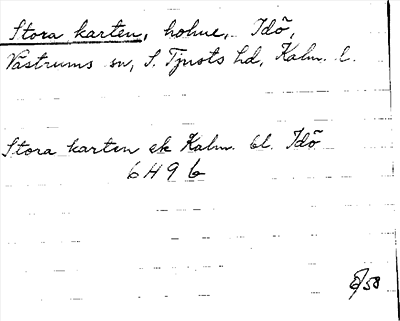 Stora karten, holme, Idö,
Västrums sn, S. Tjusts hd, Kalm. l.
Stora karten ek Kalm. bl. Idö
6 H 9 b
/58